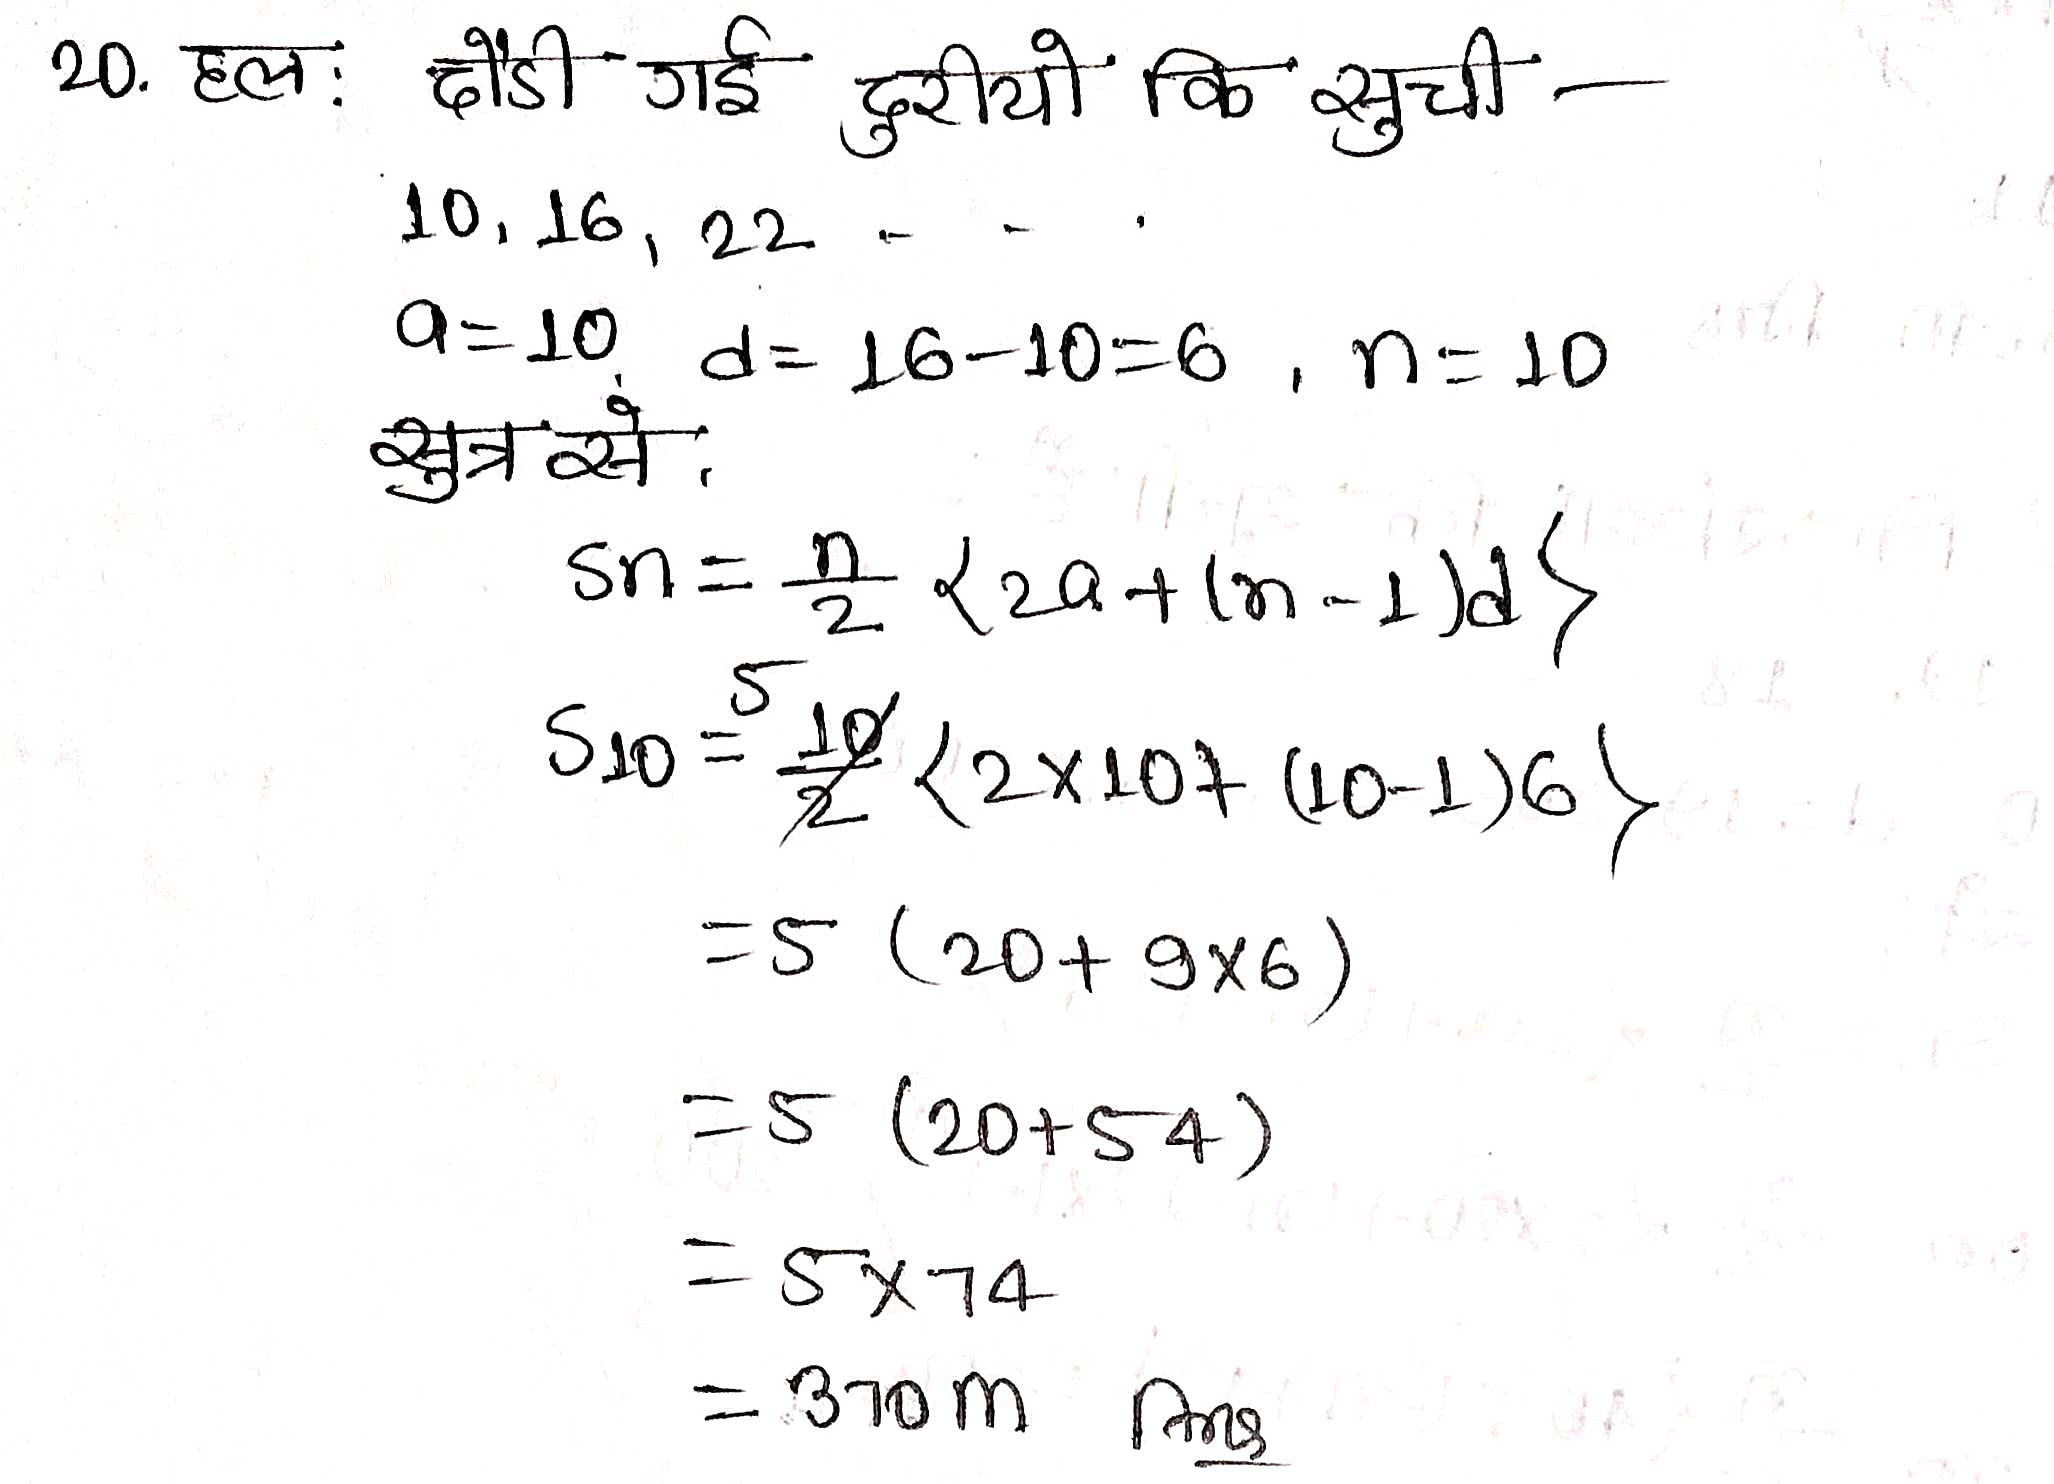 20. हल: दौडी गई दुरीयो कि सुची —
10, 16, 22 - - .
a = 10, d = 16-10=6, n = 10
सुत्र से,
Sn = n/2 {2a+(n-1)d}
S10 = 5 10/2 {2×10+ (10-1)6}
=5 (20+ 9×6)
=5 (20+54)
= 5×74
= 370m Ans